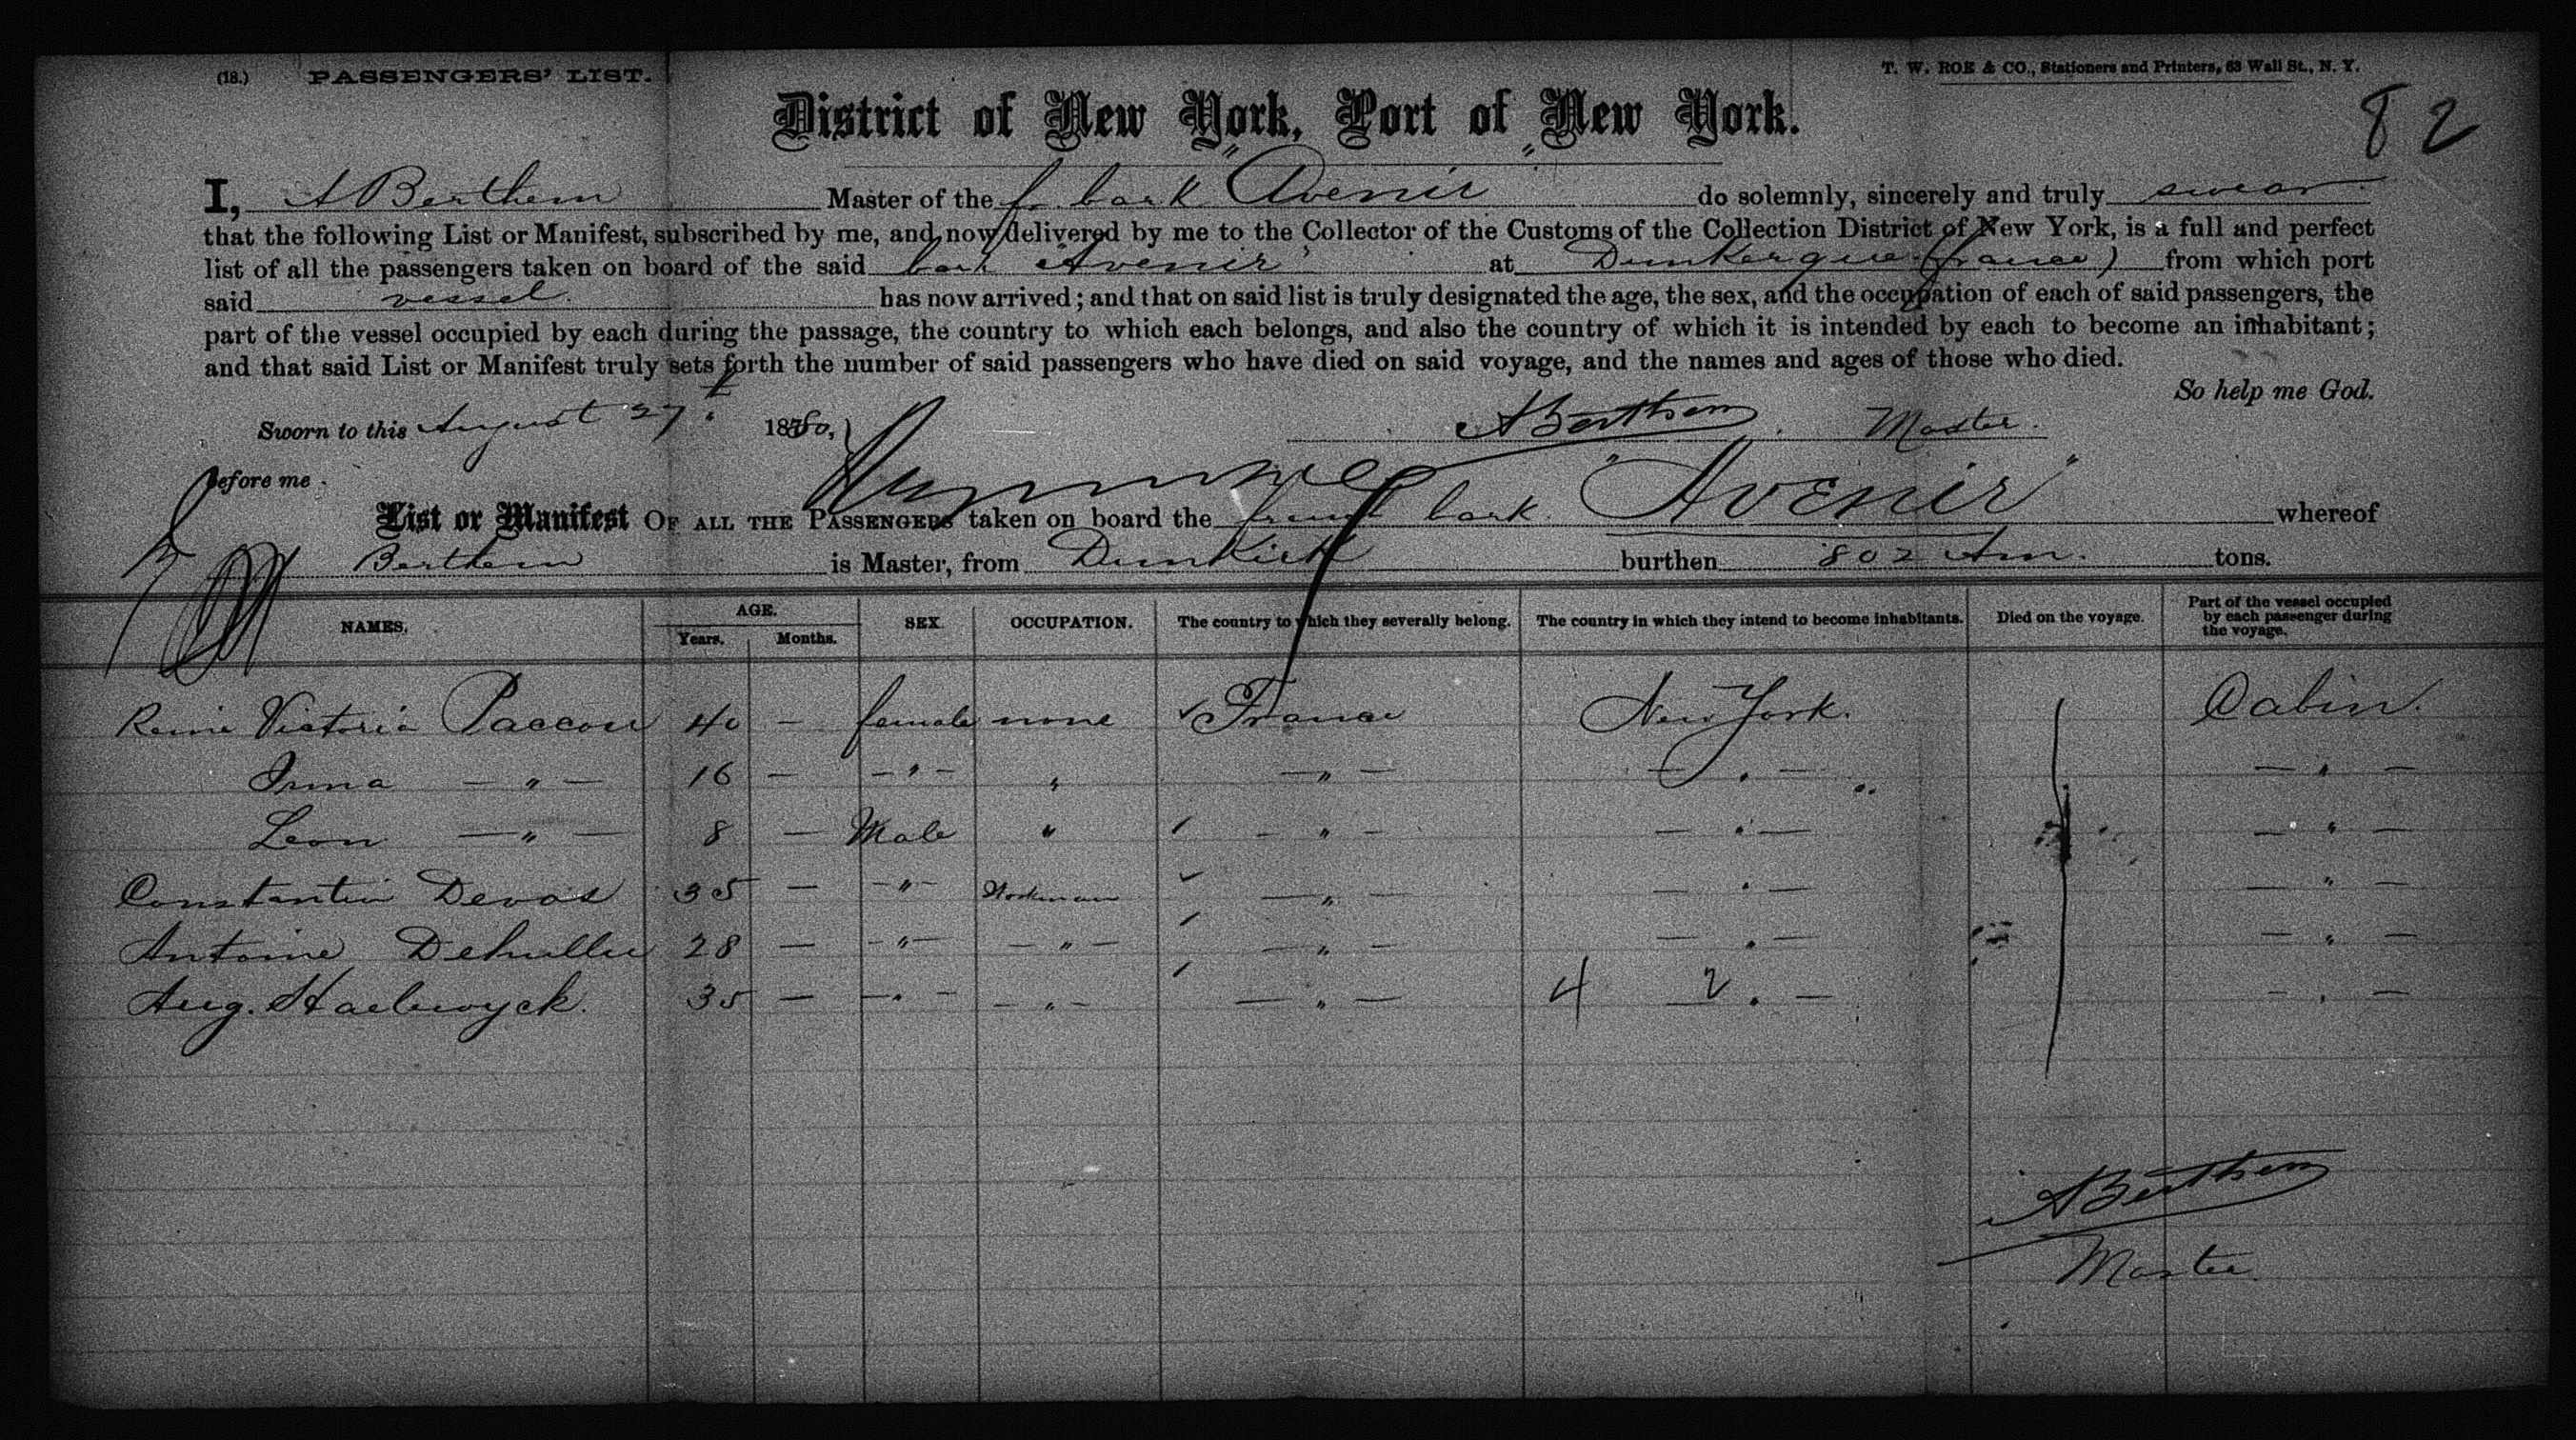 (18.) PASSENGERS' LIST. T. W. ROE & CO., Stationers and Printers, 63 Wall St., N. Y.
District of New York, Port of New York. 82
I, A Berthem Master of the fr. bark "Avenir" do solemnly, sincerely and truly swear
that the following List or Manifest, subscribed by me, and now delivered by me to the Collector of the Customs of the Collection District of New York, is a full and perfect
list of all the passengers taken on board of the said bark "Avenir" at Dunkerque (france) from which port
said vessel has now arrived; and that on said list is truly designated the age, the sex, and the occupation of each of said passengers, the
part of the vessel occupied by each during the passage, the country to which each belongs, and also the country of which it is intended by each to become an inhabitant;
and that said List or Manifest truly sets forth the number of said passengers who have died on said voyage, and the names and ages of those who died.
So help me God.
Sworn to this August 27t 1880, ABerthem Master.
Before me
List or Manifest OF ALL THE PASSENGERS taken on board the french bark "Avenir" whereof
Berthem is Master, from Dunkirk burthen 802 Am. tons.
NAMES. AGE. Years. Months. SEX. OCCUPATION. The country to which they severally belong. The country in which they intend to become inhabitants. Died on the voyage. Part of the vessel occupied by each passenger during the voyage.
Victoria Paccou 40 — female none France New York. Cabin.
Irma — " — 16 — — " — " — " — — " — — " —
Leon — " — 8 — Male " — " — — " — — " —
Constantin Devos 35 — — " — Workman — " — — " — — " —
Antoine 28 — — " — — " — — " — — " — — " —
Aug. 35 — — " — — " — — " — 4 2 — " — — " —
ABerthem
Master